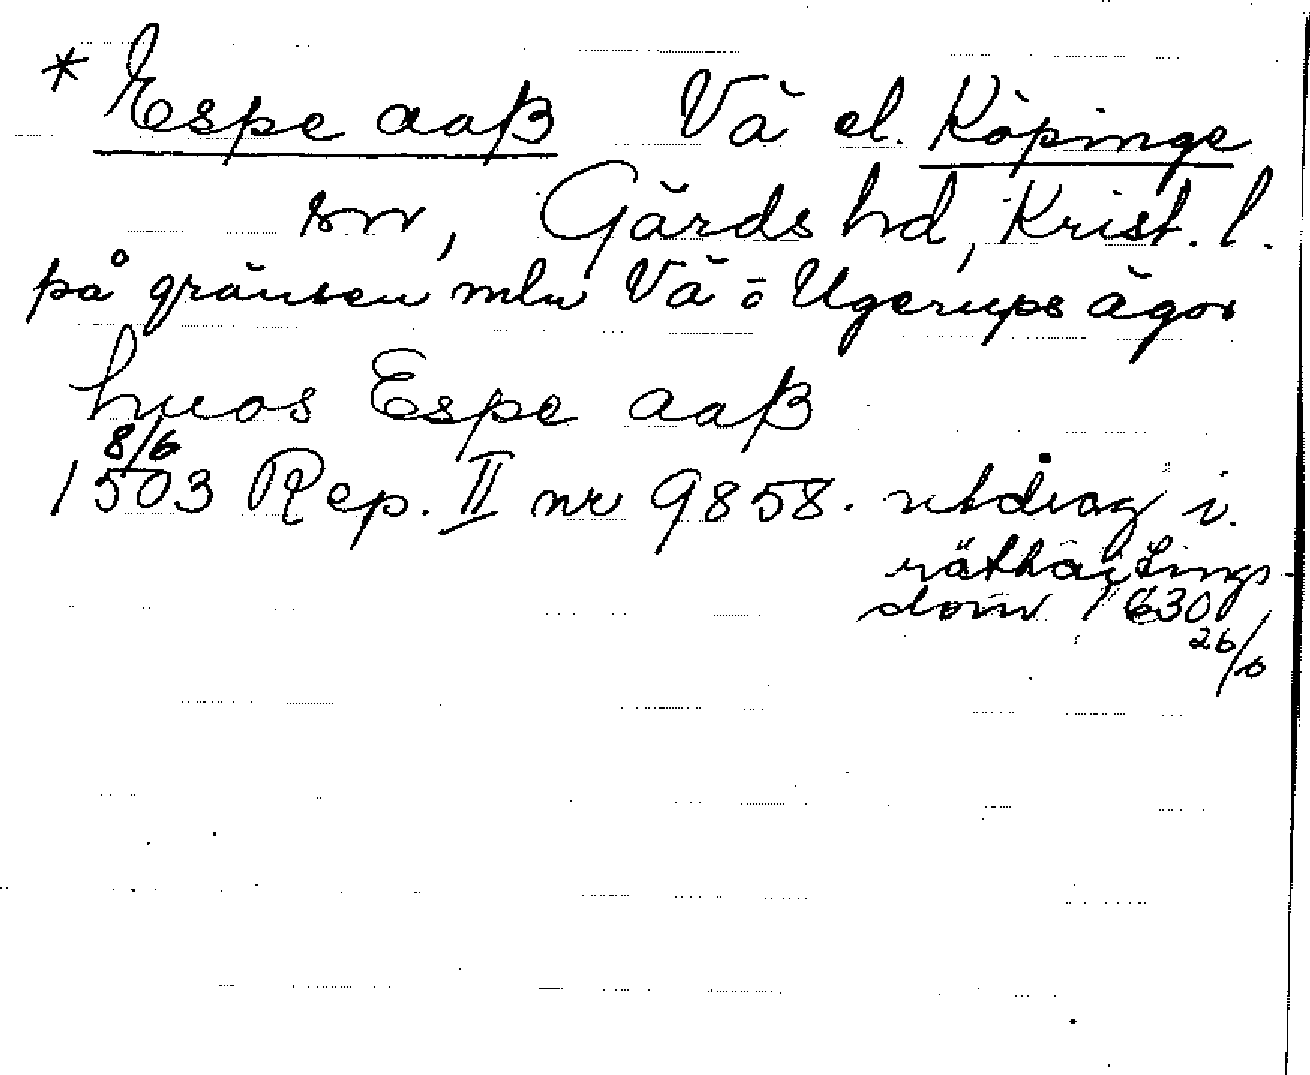 * Espe aaß Vä el. Köpinge
snr, Gärds hd, Krist. l.
på gränsen mln Vä o Ugerups ägor
huos Espe aaß
8/6
1503 Rep. II nr 9858. utdrag i
rättartings
dom 1630
26/6